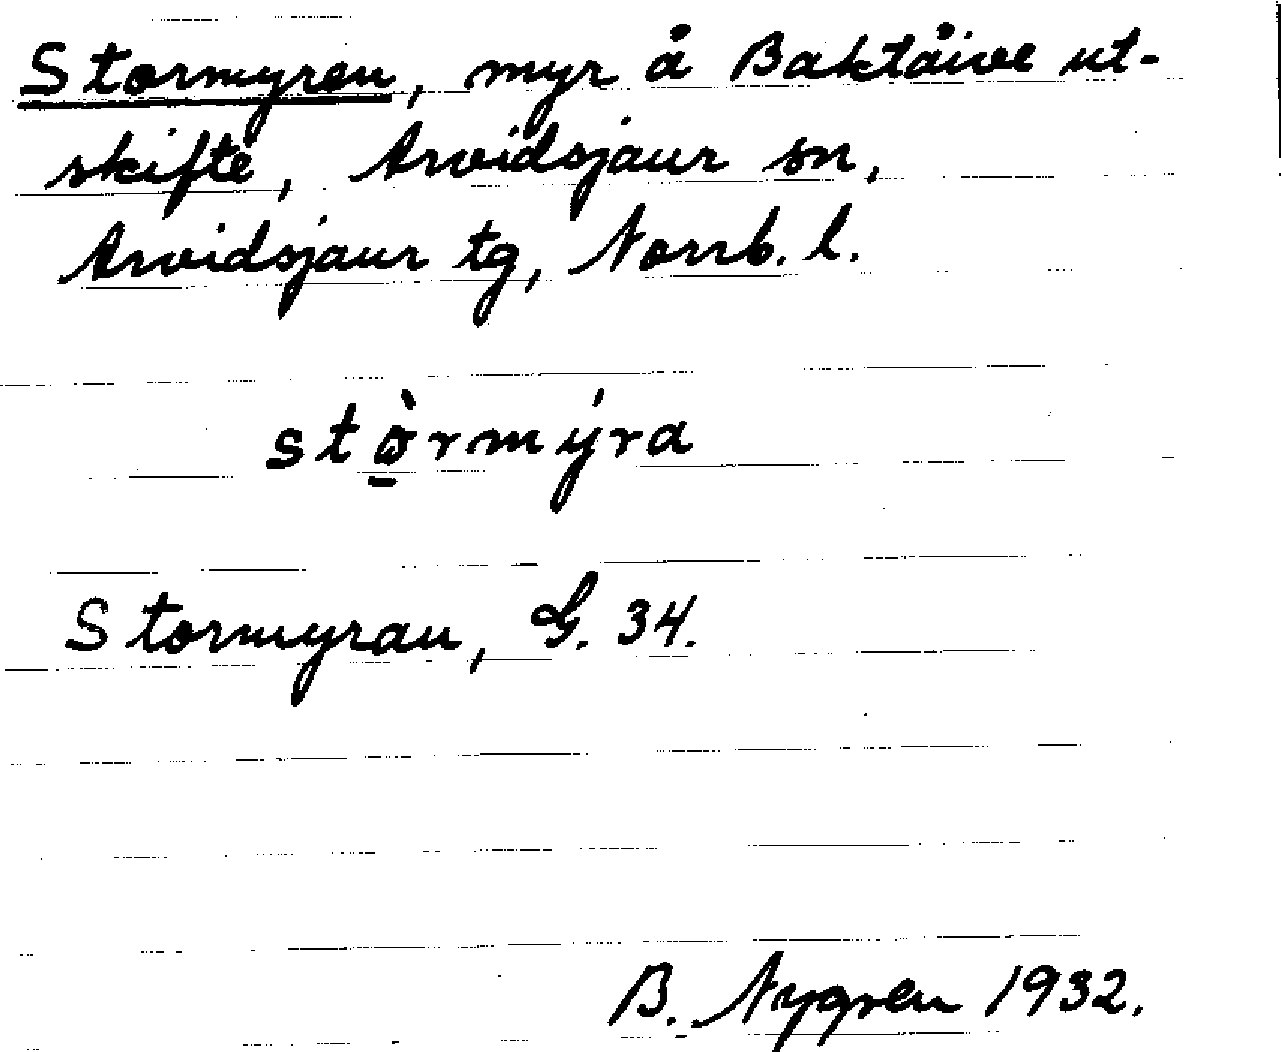 Stormyren, myr å Baktåive ut-
skifte, Arvidsjaur sn,
Arvidsjaur tg, Norrb. l.
stò̱rmýra
Stormyran, G. 34.
B. Nygren 1932.